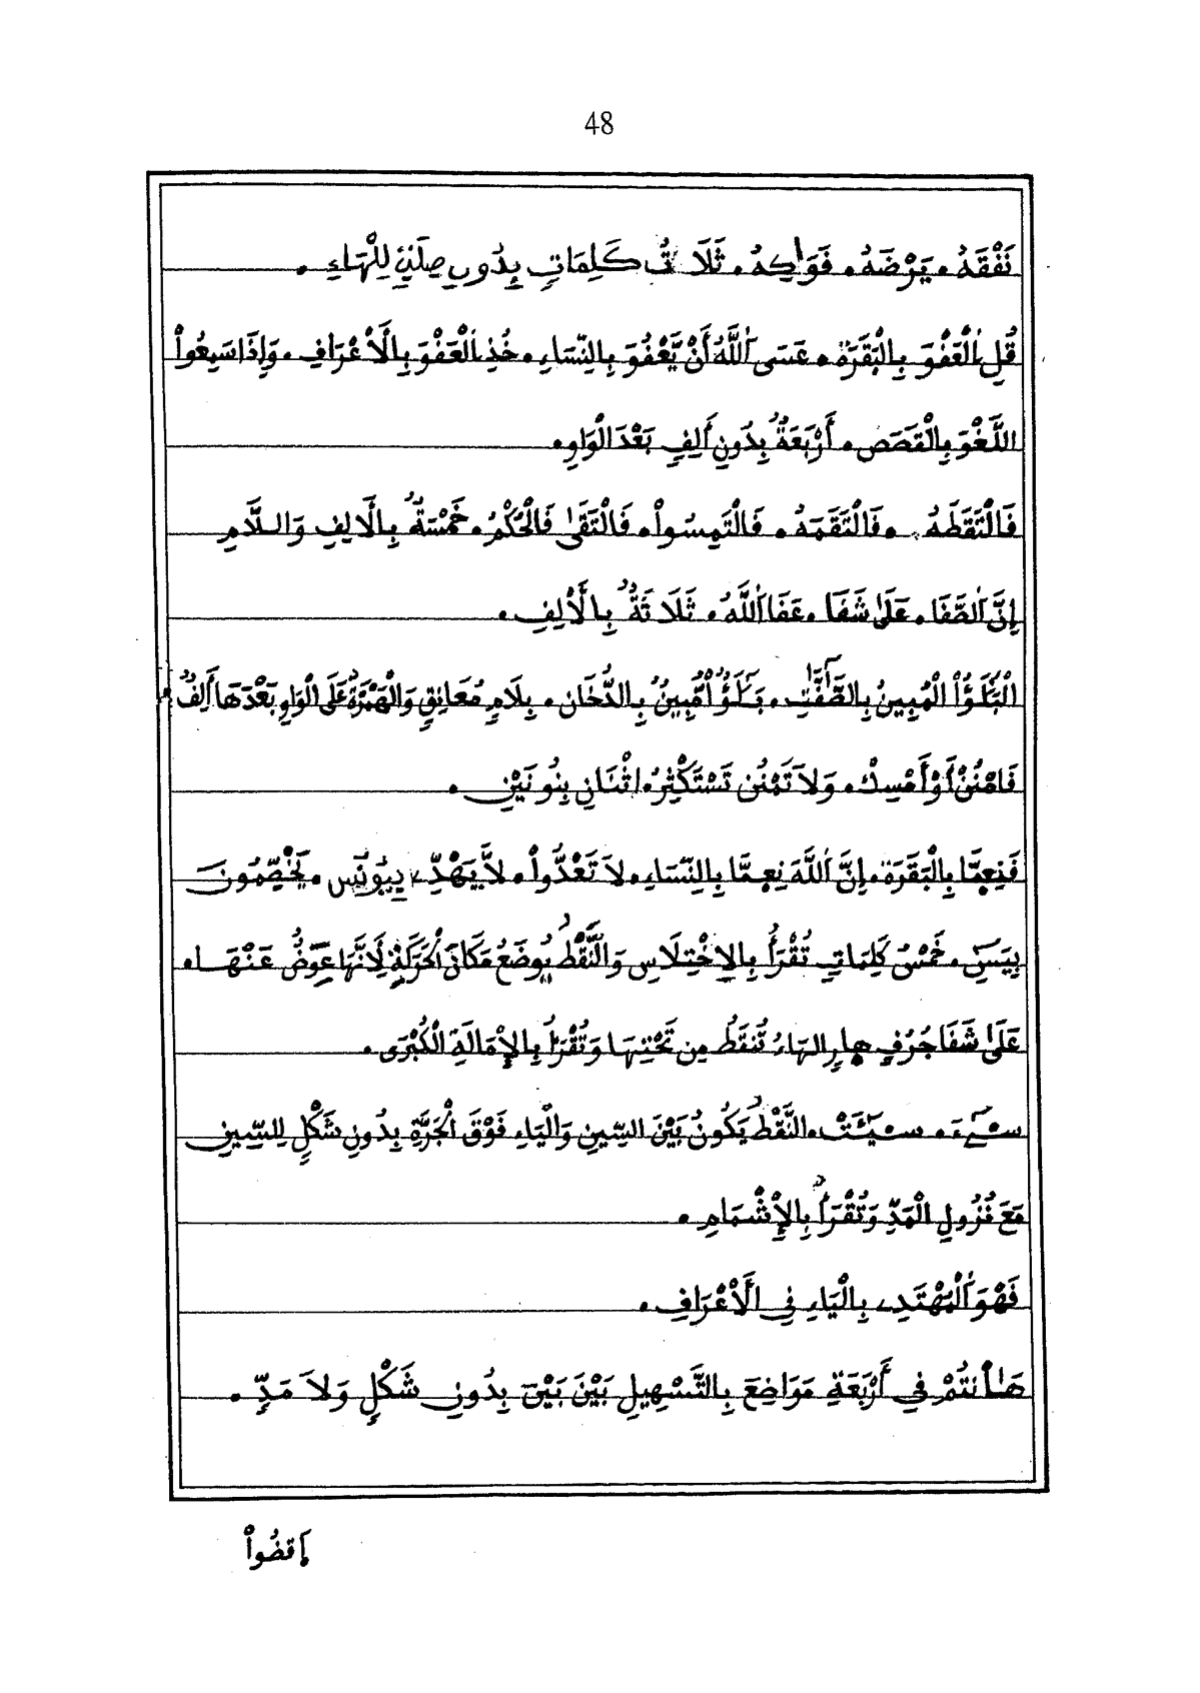 48
نَفْقَهُ. يَرْضَهُ. فَوَاكِهُ. ثَلَاثُ كَلِمَاتٍ بِدُونِ صِلَةٍ لِلْهَاءِ.
قُلِ اِ۬لْعَفْوَ بِالْبَقَرَةِ. عَسَى اَ۬للَّهُ أَنْ يَّعْفُوَ بِالنِّسَاءِ. خُذِ اِ۬لْعَفْوَ بِالَاعْرَافِ. وَإِذَا سَمِعُواْ
اللَّغْوَ بِالْقَصَصِ. أَرْبَعَةٌ بِدُونِ أَلِفٍ بَعْدَ الْوَاوِ.
فَالْتَقَطَهُ. فَالْتَقَمَهُ. فَالْتَمِسُواْ. فَالْتَقَى فَالْحُكْمُ. خَمْسَةٌ بِالَالِفِ وَاللَّامِ
إِنَّ اَ۬لصَّفَا. عَلَىٰ شَفَا. عَفَا اَ۬للَّهُ. ثَلَاثَةٌ بِالْأَلِفِ.
الْبَلَٰٓؤُاْ الْمُبِينُ بِالصَّٰٓفَّٰتِ. بَلَٰٓؤٌاْ مُّبِينٌ بِالدُّخَانِ. بِلَامٍ مُعَانِقٍ وَالْهَمْزَةُ عَلَى الْوَاوِ بَعْدَهَا أَلِفٌ
فَامْنُنْ أَوْ أَمْسِكْ. وَلَا تَمْنُن تَسْتَكْثِرُ. اثْنَانِ بِنُونَيْنِ.
فَنِعِمَّا بِالْبَقَرَةِ. إِنَّ اَ۬للَّهَ نِعِمَّا بِالنِّسَاءِ. لَا تَعْدُّواْ. لَّا يَهْدِّے بِيُونُسَ. يَخْصِّمُونَ
بِيَسِٓ. خَمْسُ كَلِمَاتٍ تُقْرَأُ بِالِاخْتِلَاسِ وَالنَّقْطُ يُوضَعُ مَكَانَ الْحَرَكَةِ لِأَنَّهَا عِوَضٌ عَنْهَا.
عَلَىٰ شَفَا جُرُفٍ هِارٍ الهَاءُ تُنقَطُ مِن تَحْتِهَا وَتُقْرَأُ بِالْإِمَالَةِ الْكُبْرَى.
سِےٓءَ. سِيٓـَٔتْ. النَّقْطُ يَكُونُ بَيْنَ السِّينِ وَالْيَاءِ فَوْقَ الْجَرَّةِ بِدُونِ شَكْلٍ لِلسِّينِ
مَعَ نُزُولِ الْمَدِّ وَتُقْرَأُ بِالْإِشْمَامِ.
فَهْوَ اَ۬لْمُهْتَدِے بِالْيَاءِ فِي الْأَعْرَافِ.
هَٰأَنتُمْ فِي أَرْبَعَةِ مَوَاضِعَ بِالتَّسْهِيلِ بَيْنَ بَيْنَ بِدُونِ شَكْلٍ وَلَا مَدٍّ.
اَقضُواْ